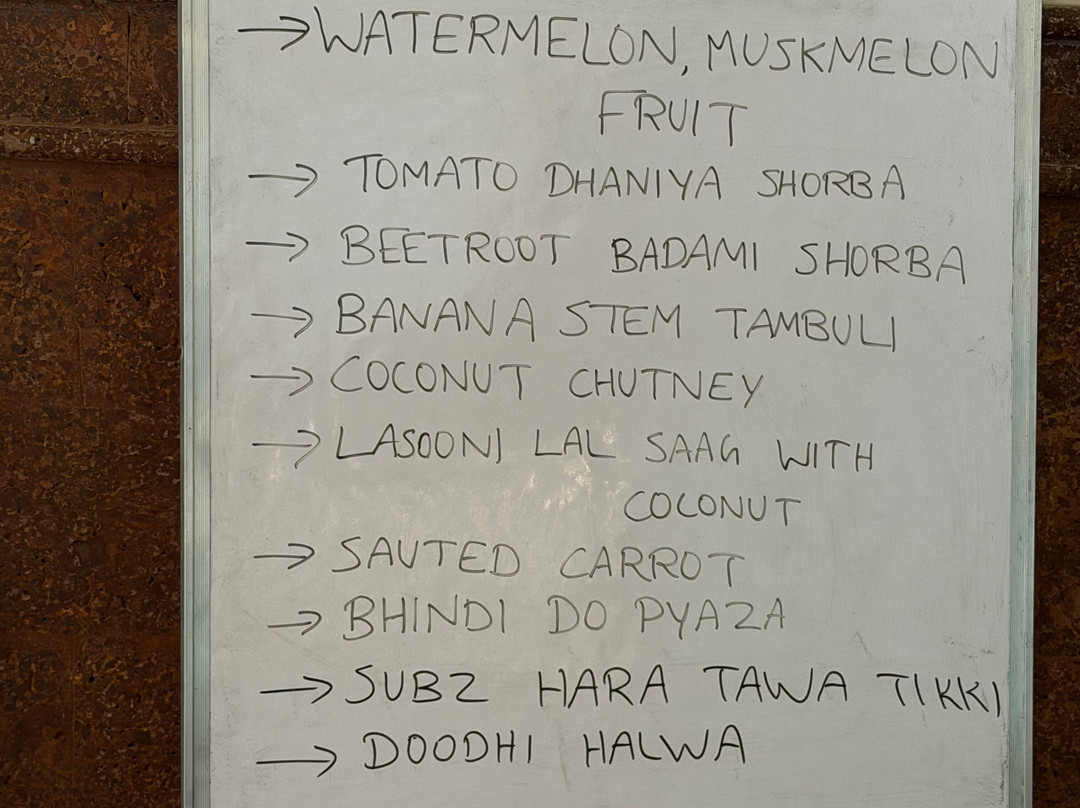 → WATERMELON, MUSKMELON
FRUIT
→ TOMATO DHANIYA SHORBA
→ BEETROOT BADAMI SHORBA
→ BANANA STEM TAMBULI
→ COCONUT CHUTNEY
→ LASOONI LAL SAAG WITH
COCONUT
→ SAUTED CARROT
→ BHINDI DO PYAZA
→ SUBZ HARA TAWA TIKKI
→ DOODHI HALWA